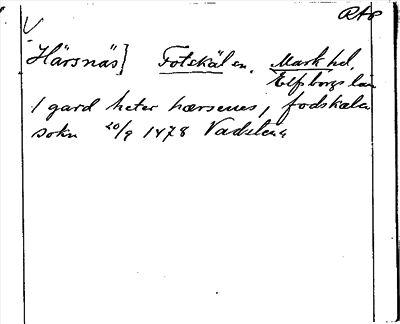 RAP
V
Härsnäs] Fotskäl sn. Mark hd.
Elfsborgs län
1 gard heter hærsenes, fodskæla
sokn 20/9 1478 Vadstena